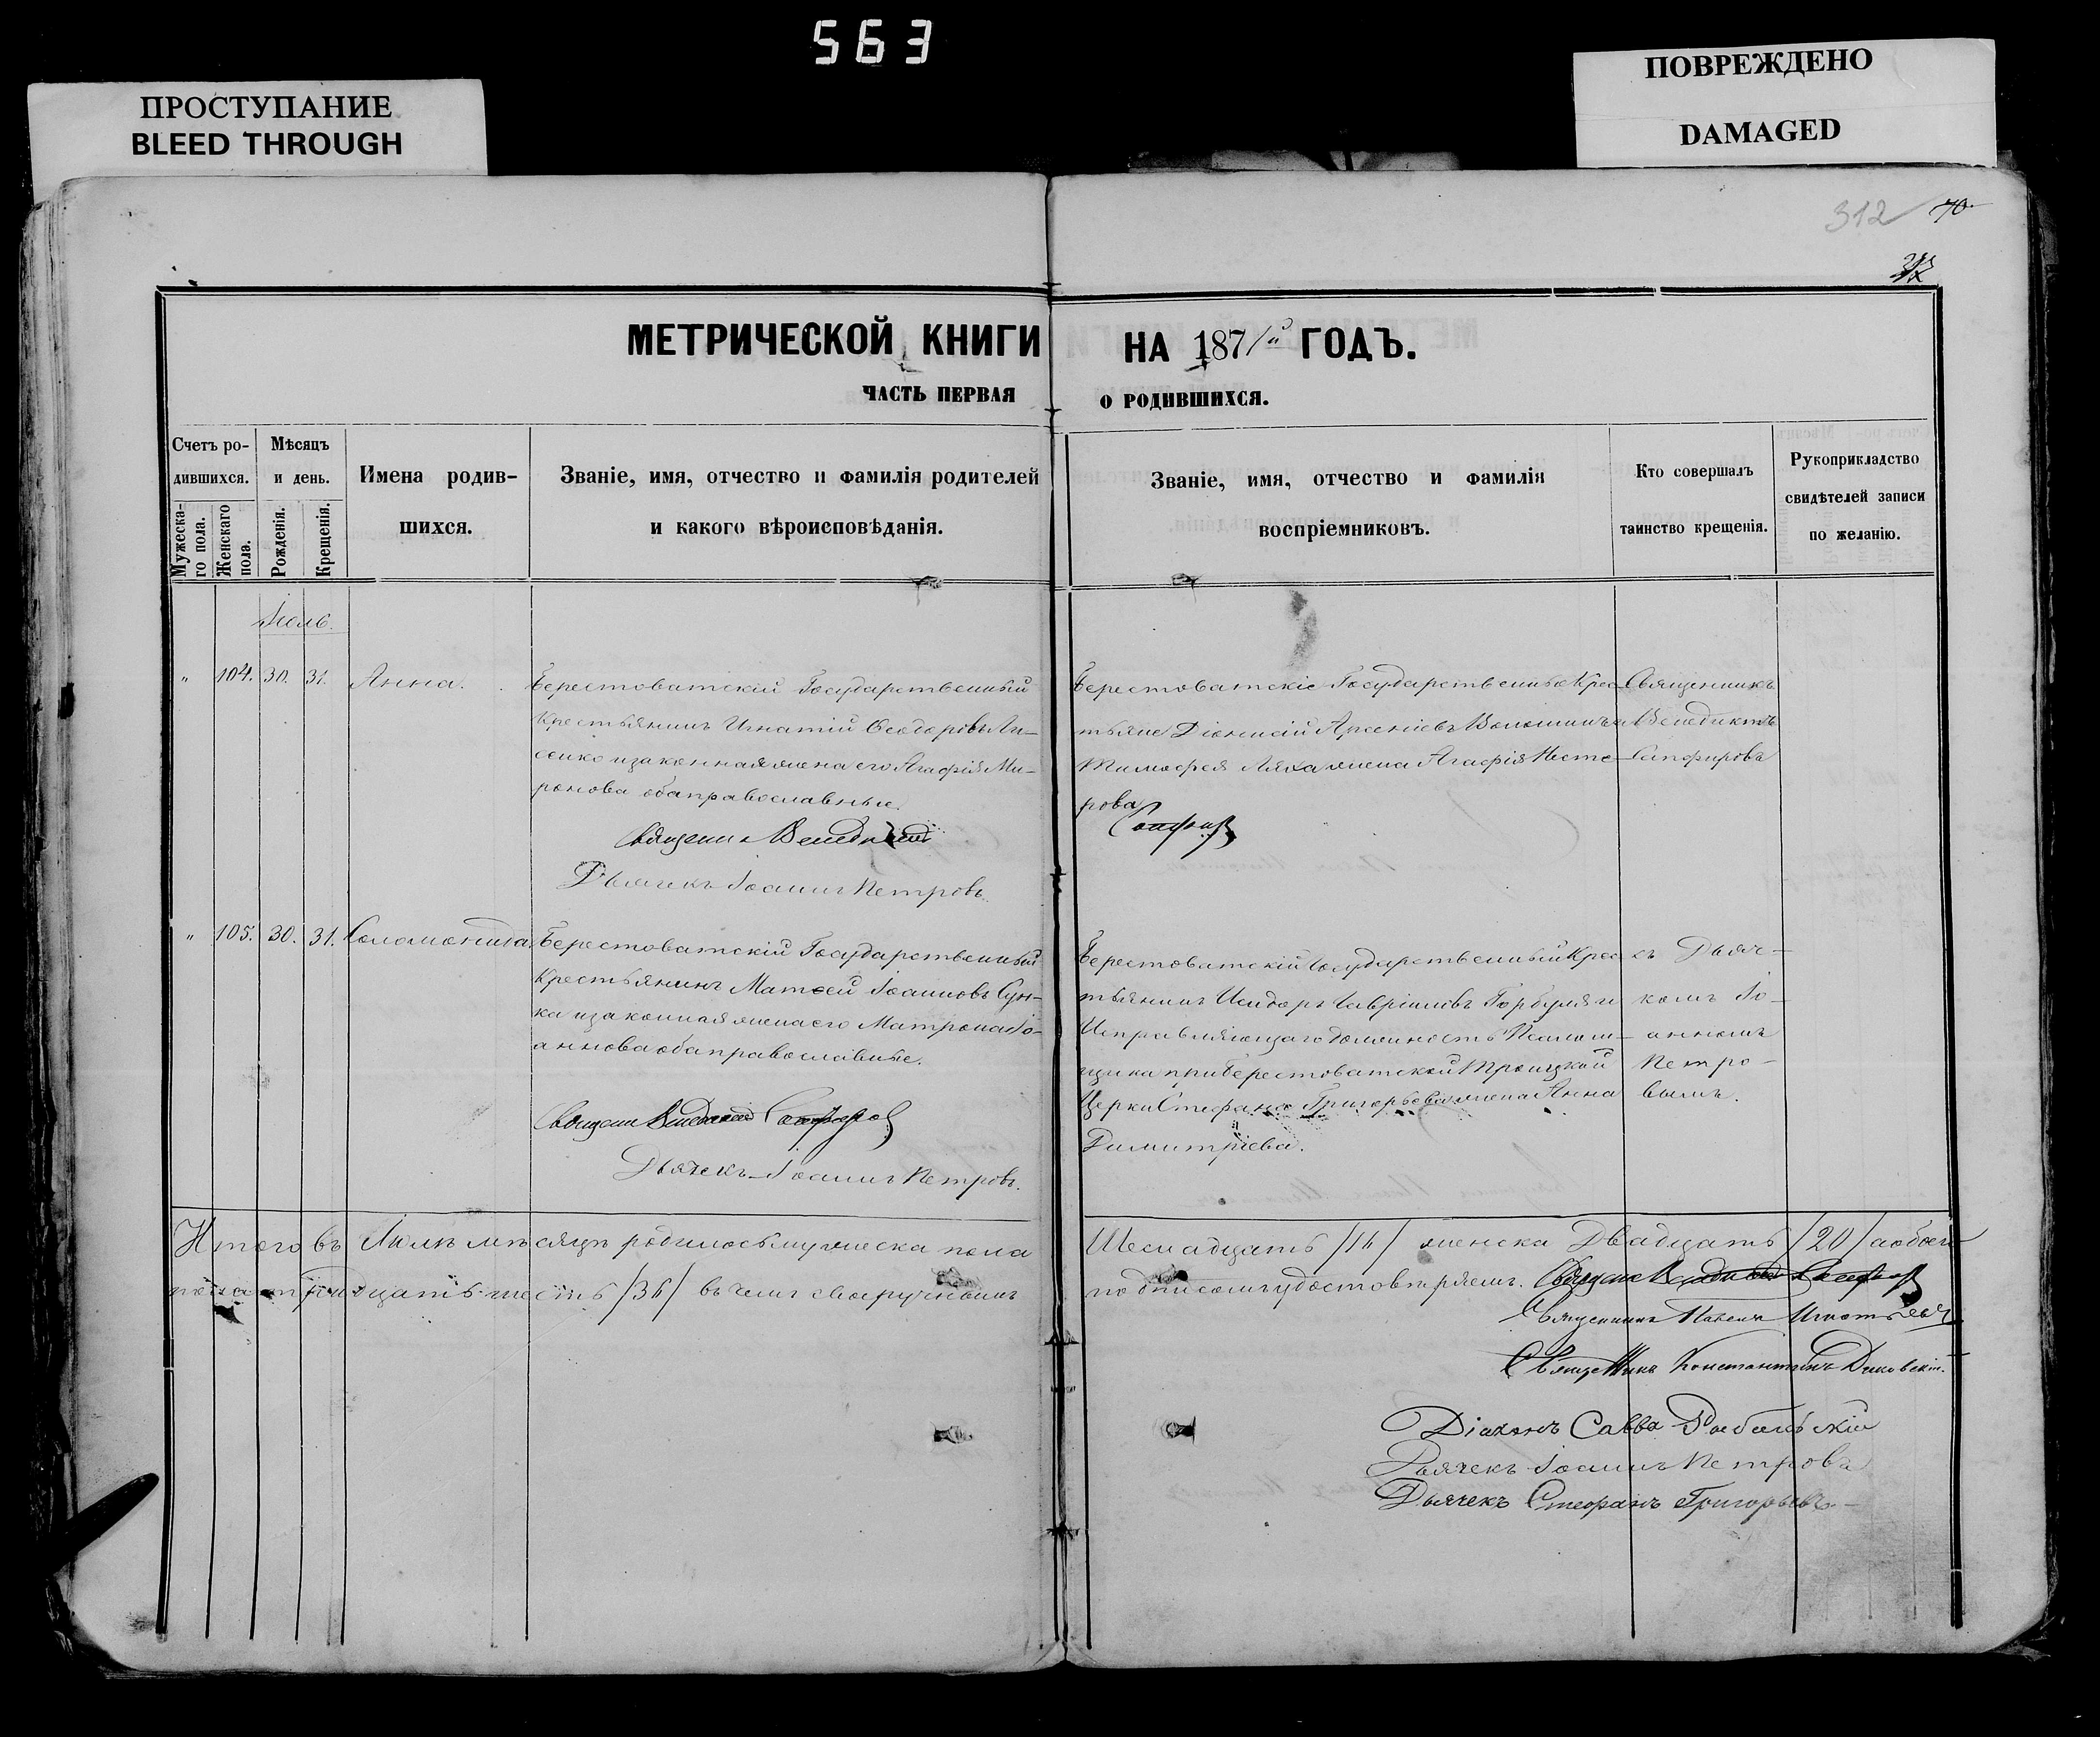 563
ПРОСТУПАНИЕ
BLEED THROUGH
ПОВРЕЖДЕНО
DAMAGED
312 70
МЕТРИЧЕСКОЙ КНИГИ НА 1871й ГОДЪ.
ЧАСТЬ ПЕРВАЯ О РОДИВШИХСЯ.
Счетъ ро-
дившихся.
Мужеска-
го пола.
Женскаго
пола.
Мѣсяцъ
и день.
Рожденія.
Крещенія.
Имена родив-
шихся.
Званіе, имя, отчество и фамилія родителей
и какого вѣроисповѣданія.
Званіе, имя, отчество и фамилія
воспріемниковъ.
Кто совершалъ
таинство крещенія.
Рукоприкладство
свидѣтелей записи
по желанію.
Іюль.
" 104. 30. 31. Анна.
Берестоватскій Государственный
Крестьянинъ Игнатій Ѳеодоровъ Ли-
сенко и законная жена его Агафія Ми-
ронова оба православные.
Дьячекъ Іоаннъ Петровъ.
Берестоватскіе Государственные Крес-
тьяне Діонисій Арсеніевъ Волошинъ и
Тимофея Ляха жена Агафія Несте-
рова
Священникъ
Венедиктъ
Сапфировъ
" 105. 30. 31. Соломонида.
Берестоватскій Государственный
Крестьянинъ Матѳей Іоанновъ
ка и законная жена его Матрона Іо-
аннова оба православные.
Дьячекъ Іоаннъ Петровъ.
Берестоватскій Государственный Крес-
тьянинъ Исидоръ Гавріиловъ Горбуля и
Исправляющаго должность Псаломщ-
щика при Берестоватской Троицкой
Церкви Стефана Григорьева жена Анна
Димитріева.
съ Дьяч-
комъ Іо-
анномъ
Петро-
вымъ.
Итого въ Іюлѣ мѣсяцѣ родилось мужеска пола Шеснадцать /16/ женска Двадцать /20/ а обоего
пола тридцать шесть /36/ въ чемъ своеручнымъ подписомъ удостовѣряемъ.
Священникъ Павелъ Игнатьевъ
Священникъ Константинъ Диковскій.
Діаконъ Савва
Дьячекъ Іоаннъ Петровъ
Дьячекъ Стефанъ Григорьевъ